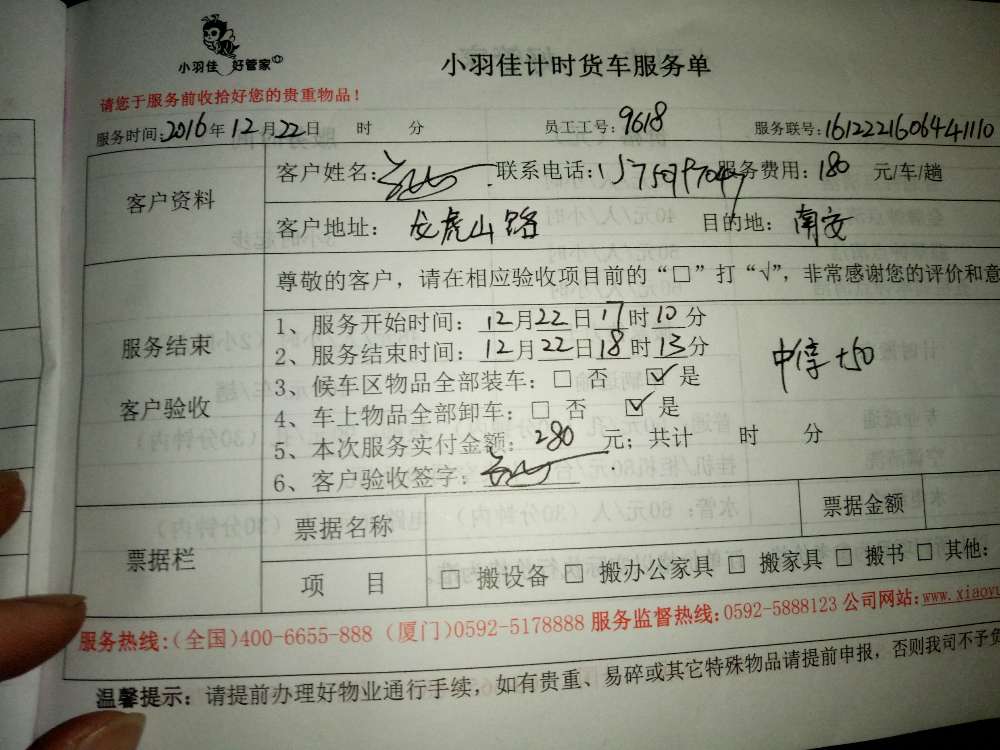 小羽佳 好管家
小羽佳计时货车服务单
请您于服务前收拾好您的贵重物品！
服务时间:2016年12月22日 时 分 员工工号:9618 服务联号:16122216064441110
客户资料
客户姓名: 联系电话: 服务费用:180 元/车/趟
客户地址: 龙虎山路 目的地: 南安
尊敬的客户，请在相应验收项目前的“□”打“√”，非常感谢您的评价和意
服务结束
客户验收
1、服务开始时间：12月22日17时10分
2、服务结束时间：12月22日18时13分
中停+50
3、候车区物品全部装车：□ 否 ☑ 是
4、车上物品全部卸车：□ 否 ☑ 是
5、本次服务实付金额：280 元；共计 时 分
6、客户验收签字：
票据栏
票据名称 票据金额
项 目 □ 搬设备 □ 搬办公家具 □ 搬家具 □ 搬书 □ 其他：
服务热线:(全国)400-6655-888 (厦门)0592-5178888 服务监督热线:0592-5888123 公司网站:www.xiaoyu
温馨提示：请提前办理好物业通行手续，如有贵重、易碎或其它特殊物品请提前申报，否则我司不予负